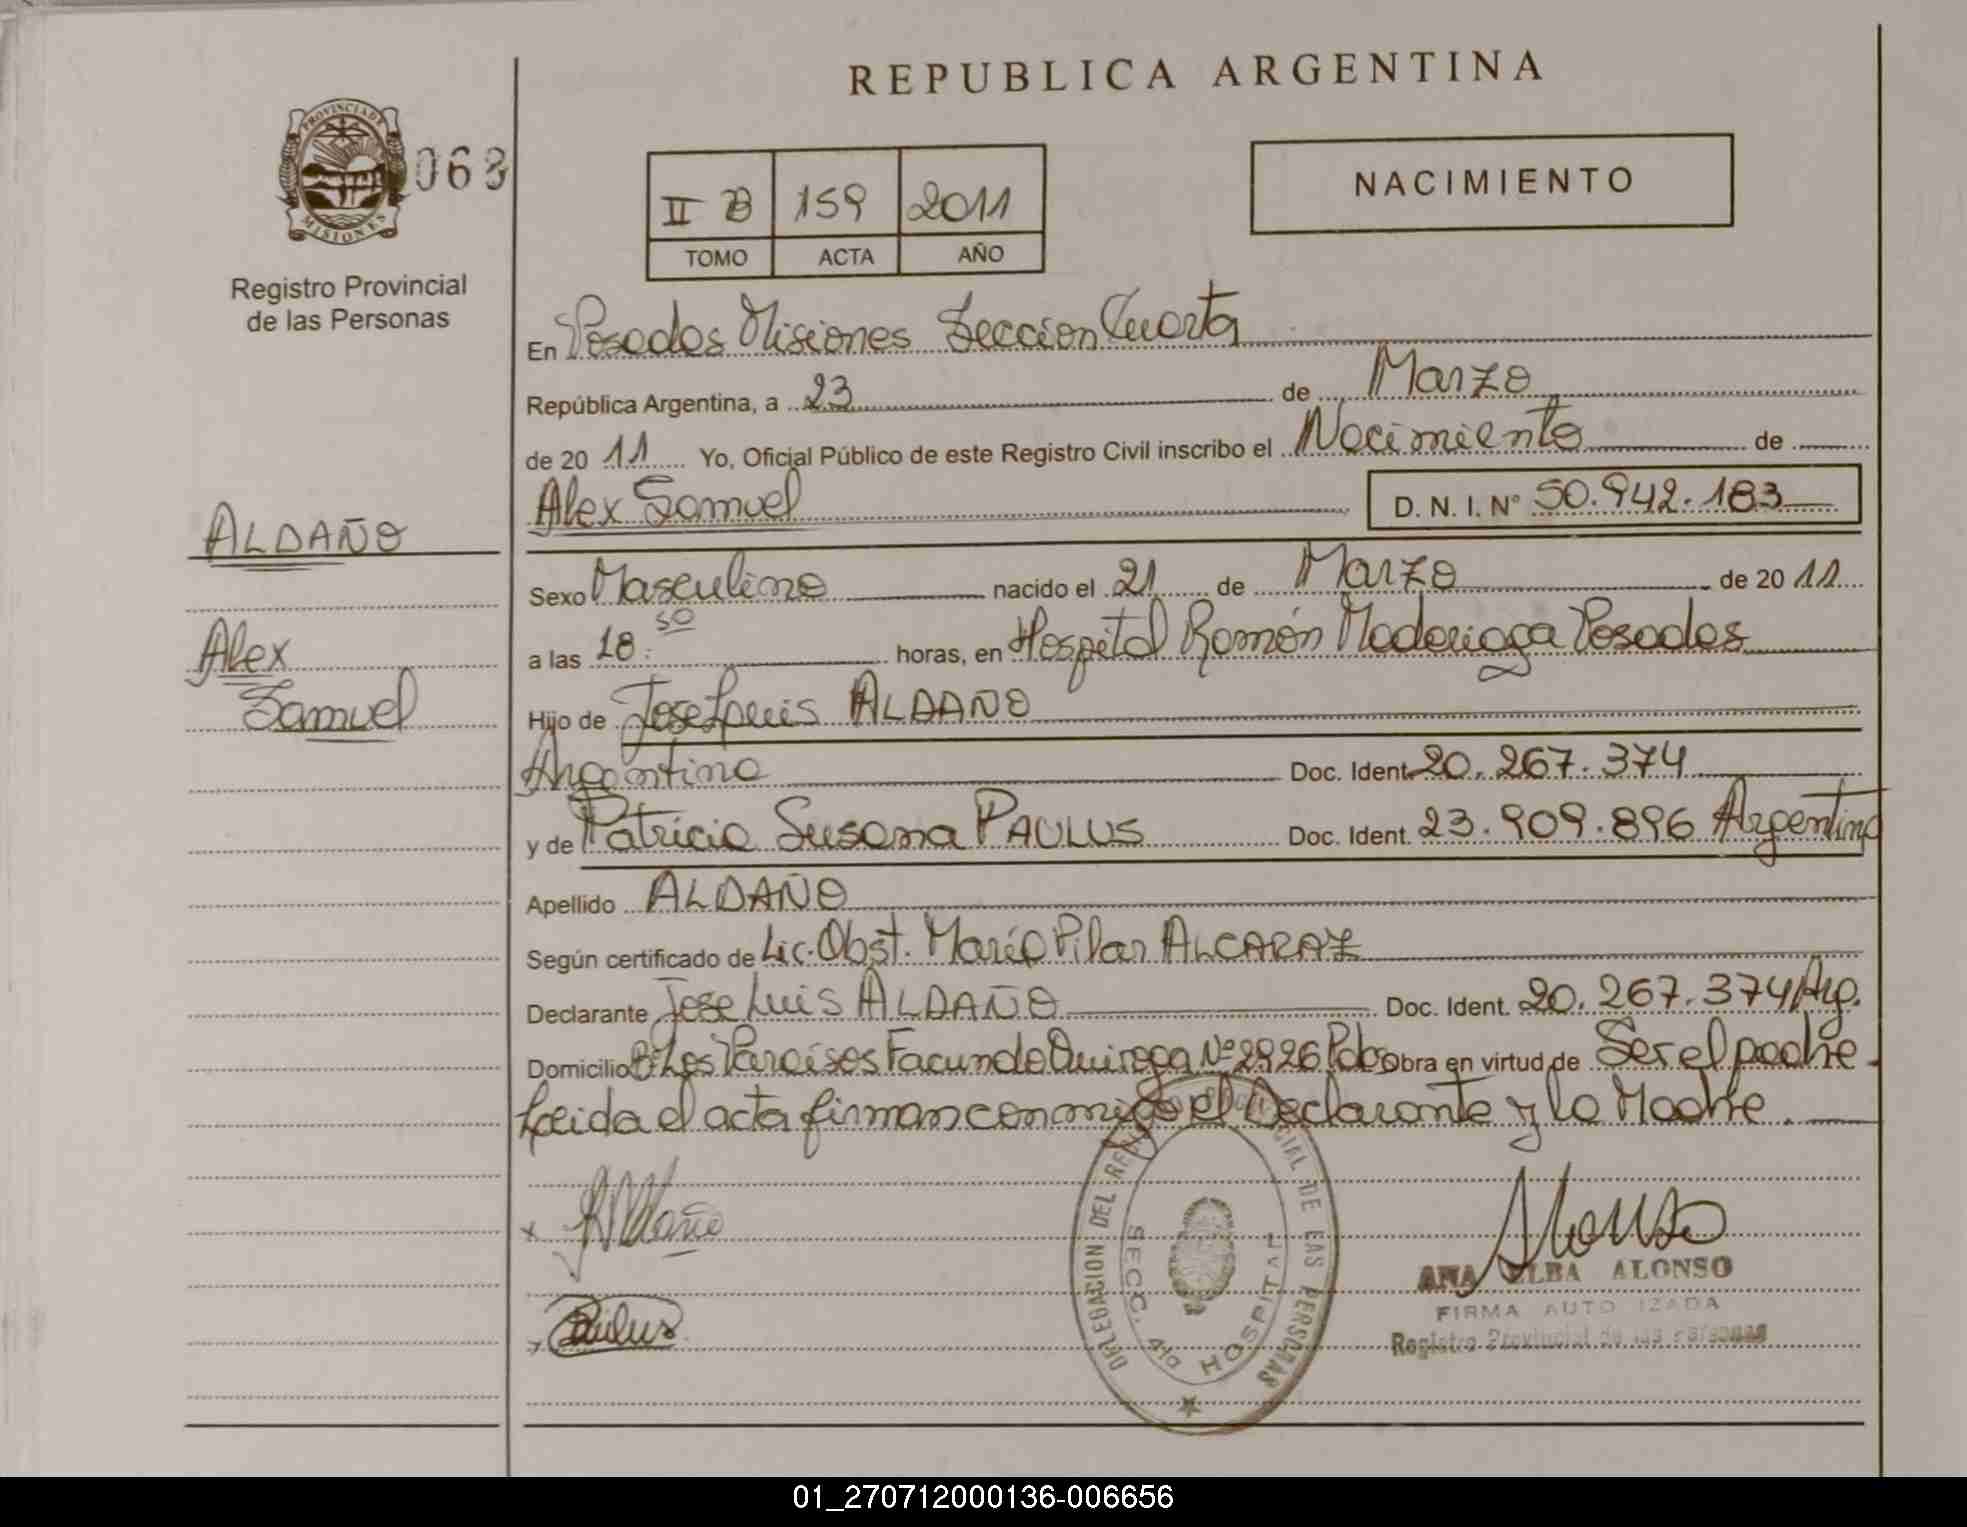 REPUBLICA ARGENTINA
PROVINCIA DE MISIONES
068
Registro Provincial
de las Personas
II B 159 2011
TOMO ACTA AÑO
NACIMIENTO
En Posadas Misiones Seccion Cuarta
República Argentina, a 23 de Marzo
de 2011 Yo, Oficial Público de este Registro Civil inscribo el Nacimiento de
Alex Samuel D. N. I. Nº 50.942.183
ALDAÑO
Alex
Samuel
Sexo Masculino nacido el 21 de Marzo de 2011
a las 18:50 horas, en Hospital Ramón Madariaga Posadas
Hijo de Jose Luis ALDAÑO
Argentino Doc. Ident. 20.267.374
y de Patricia Susana PAULUS Doc. Ident. 23.909.896 Argentina
Apellido ALDAÑO
Según certificado de Lic. Obst. María Pilar ALCARAZ
Declarante Jose Luis ALDAÑO Doc. Ident. 20.267.374 Arg.
Domicilio Bº Los Paraisos Facundo Quiroga Nº 2926 Pdas Obra en virtud de Ser el padre
Leida el acta firman conmigo el Declarante y la Madre.
x Aldaño
Paulus
DELEGACION DEL REGISTRO PROVINCIAL DE LAS PERSONAS
SECC. 4ta HOSPITAL
Alonso
ANA ELBA ALONSO
FIRMA AUTORIZADA
Registro Provincial de las Personas
01_270712000136-006656